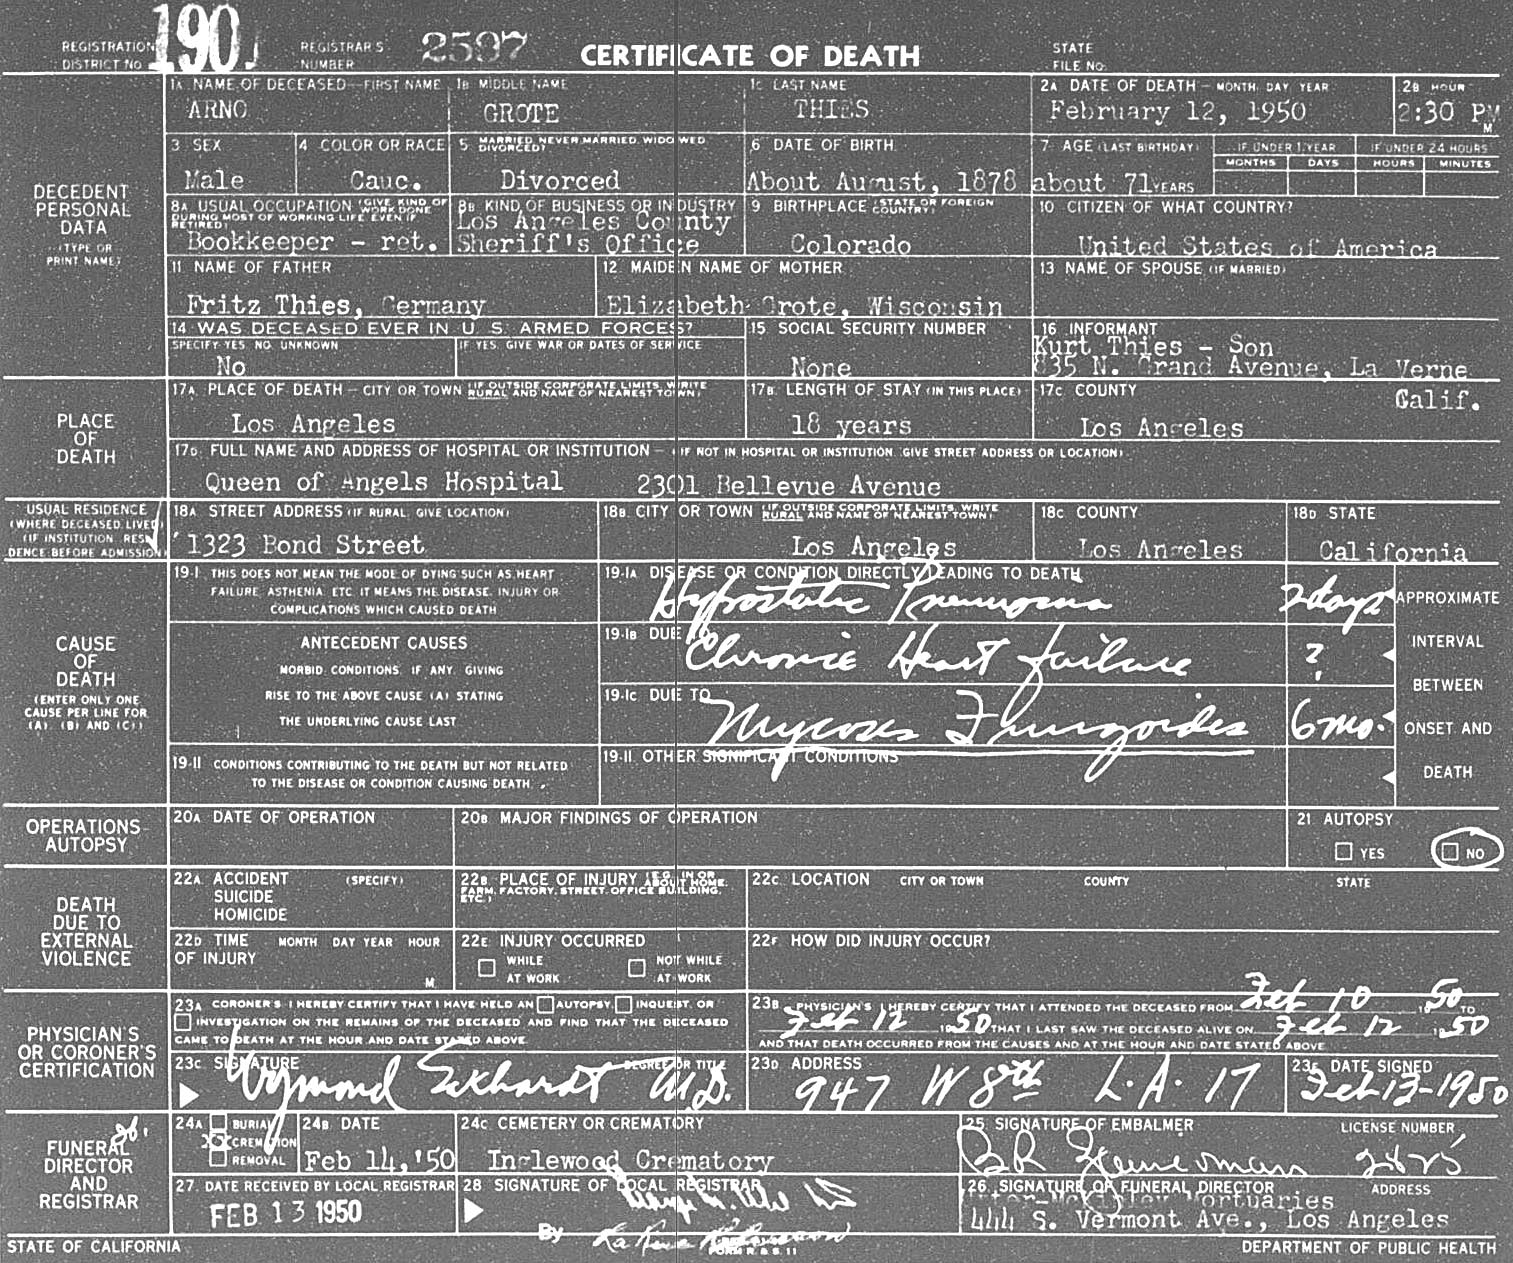 REGISTRATION DISTRICT NO 1901 REGISTRAR'S NUMBER 2597 CERTIFICATE OF DEATH STATE FILE NO.
DECEDENT PERSONAL DATA (TYPE OR PRINT NAME)
1A NAME OF DECEASED—FIRST NAME 1B MIDDLE NAME 1C LAST NAME 2A DATE OF DEATH — MONTH, DAY, YEAR 2B HOUR
ARNO GROTE THIES February 12, 1950 2:30 PM M
3 SEX 4 COLOR OR RACE 5 MARRIED, NEVER MARRIED, WIDOWED, DIVORCED? 6 DATE OF BIRTH 7 AGE (LAST BIRTHDAY) IF UNDER 1 YEAR IF UNDER 24 HOURS
MONTHS DAYS HOURS MINUTES
Male Cauc. Divorced About August, 1878 about 71 YEARS
8A USUAL OCCUPATION (GIVE KIND OF WORK DONE DURING MOST OF WORKING LIFE EVEN IF RETIRED) 8B KIND OF BUSINESS OR INDUSTRY 9 BIRTHPLACE (STATE OR FOREIGN COUNTRY) 10 CITIZEN OF WHAT COUNTRY?
Bookkeeper - ret. Los Angeles County Sheriff's Office Colorado United States of America
11 NAME OF FATHER 12 MAIDEN NAME OF MOTHER 13 NAME OF SPOUSE (IF MARRIED)
Fritz Thies, Germany Elizabeth Grote, Wisconsin
14 WAS DECEASED EVER IN U. S. ARMED FORCES? 15 SOCIAL SECURITY NUMBER 16 INFORMANT
SPECIFY YES, NO, UNKNOWN IF YES, GIVE WAR OR DATES OF SERVICE Kurt Thies - Son
No None 835 N. Grand Avenue, La Verne
Calif.
PLACE OF DEATH
17A PLACE OF DEATH — CITY OR TOWN (IF OUTSIDE CORPORATE LIMITS, WRITE RURAL AND NAME OF NEAREST TOWN) 17B LENGTH OF STAY (IN THIS PLACE) 17C COUNTY
Los Angeles 18 years Los Angeles
17D FULL NAME AND ADDRESS OF HOSPITAL OR INSTITUTION — (IF NOT IN HOSPITAL OR INSTITUTION, GIVE STREET ADDRESS OR LOCATION)
Queen of Angels Hospital 2301 Bellevue Avenue
USUAL RESIDENCE (WHERE DECEASED LIVED) (IF INSTITUTION: RESIDENCE BEFORE ADMISSION)
18A STREET ADDRESS (IF RURAL, GIVE LOCATION) 18B CITY OR TOWN (IF OUTSIDE CORPORATE LIMITS, WRITE RURAL AND NAME OF NEAREST TOWN) 18C COUNTY 18D STATE
1323 Bond Street Los Angeles Los Angeles California
CAUSE OF DEATH (ENTER ONLY ONE CAUSE PER LINE FOR (A), (B) AND (C))
19-I THIS DOES NOT MEAN THE MODE OF DYING SUCH AS HEART FAILURE, ASTHENIA, ETC. IT MEANS THE DISEASE, INJURY OR COMPLICATIONS WHICH CAUSED DEATH
ANTECEDENT CAUSES
MORBID CONDITIONS, IF ANY, GIVING RISE TO THE ABOVE CAUSE (A) STATING THE UNDERLYING CAUSE LAST
19-IA DISEASE OR CONDITION DIRECTLY LEADING TO DEATH
Hypostatic Pneumonia 2 days
19-IB DUE TO
Chronic Heart failure ?
19-IC DUE TO
Mycoses Fungoides 6 mo.
APPROXIMATE INTERVAL BETWEEN ONSET AND DEATH
19-II CONDITIONS CONTRIBUTING TO THE DEATH BUT NOT RELATED TO THE DISEASE OR CONDITION CAUSING DEATH.
19-II OTHER SIGNIFICANT CONDITIONS
OPERATIONS AUTOPSY
20A DATE OF OPERATION 20B MAJOR FINDINGS OF OPERATION 21 AUTOPSY
YES NO
DEATH DUE TO EXTERNAL VIOLENCE
22A ACCIDENT SUICIDE HOMICIDE (SPECIFY) 22B PLACE OF INJURY (E.G. IN OR ABOUT HOME, FARM, FACTORY, STREET, OFFICE BUILDING, ETC.) 22C LOCATION CITY OR TOWN COUNTY STATE
22D TIME OF INJURY MONTH DAY YEAR HOUR M. 22E INJURY OCCURRED WHILE AT WORK NOT WHILE AT WORK 22F HOW DID INJURY OCCUR?
PHYSICIAN'S OR CORONER'S CERTIFICATION
23A CORONER'S: I HEREBY CERTIFY THAT I HAVE HELD AN AUTOPSY, INQUEST, OR INVESTIGATION ON THE REMAINS OF THE DECEASED AND FIND THAT THE DECEASED CAME TO DEATH AT THE HOUR AND DATE STATED ABOVE.
23B PHYSICIAN'S: I HEREBY CERTIFY THAT I ATTENDED THE DECEASED FROM Feb 10 1950 TO Feb 12 1950 THAT I LAST SAW THE DECEASED ALIVE ON Feb 12 1950 AND THAT DEATH OCCURRED FROM THE CAUSES AND AT THE HOUR AND DATE STATED ABOVE
23C SIGNATURE DEGREE OR TITLE 23D ADDRESS 23E DATE SIGNED
Wymond Eckhardt M.D. 947 W 8th L.A. 17 Feb 13-1950
FUNERAL DIRECTOR AND REGISTRAR
24A BURIAL XX CREMATION REMOVAL 24B DATE 24C CEMETERY OR CREMATORY 25 SIGNATURE OF EMBALMER LICENSE NUMBER
Feb 14,'50 Inglewood Crematory
27. DATE RECEIVED BY LOCAL REGISTRAR 28 SIGNATURE OF LOCAL REGISTRAR 26 SIGNATURE OF FUNERAL DIRECTOR ADDRESS
FEB 13 1950 By Mortuaries
444 S. Vermont Ave., Los Angeles
STATE OF CALIFORNIA FORM R. & S. 11 DEPARTMENT OF PUBLIC HEALTH